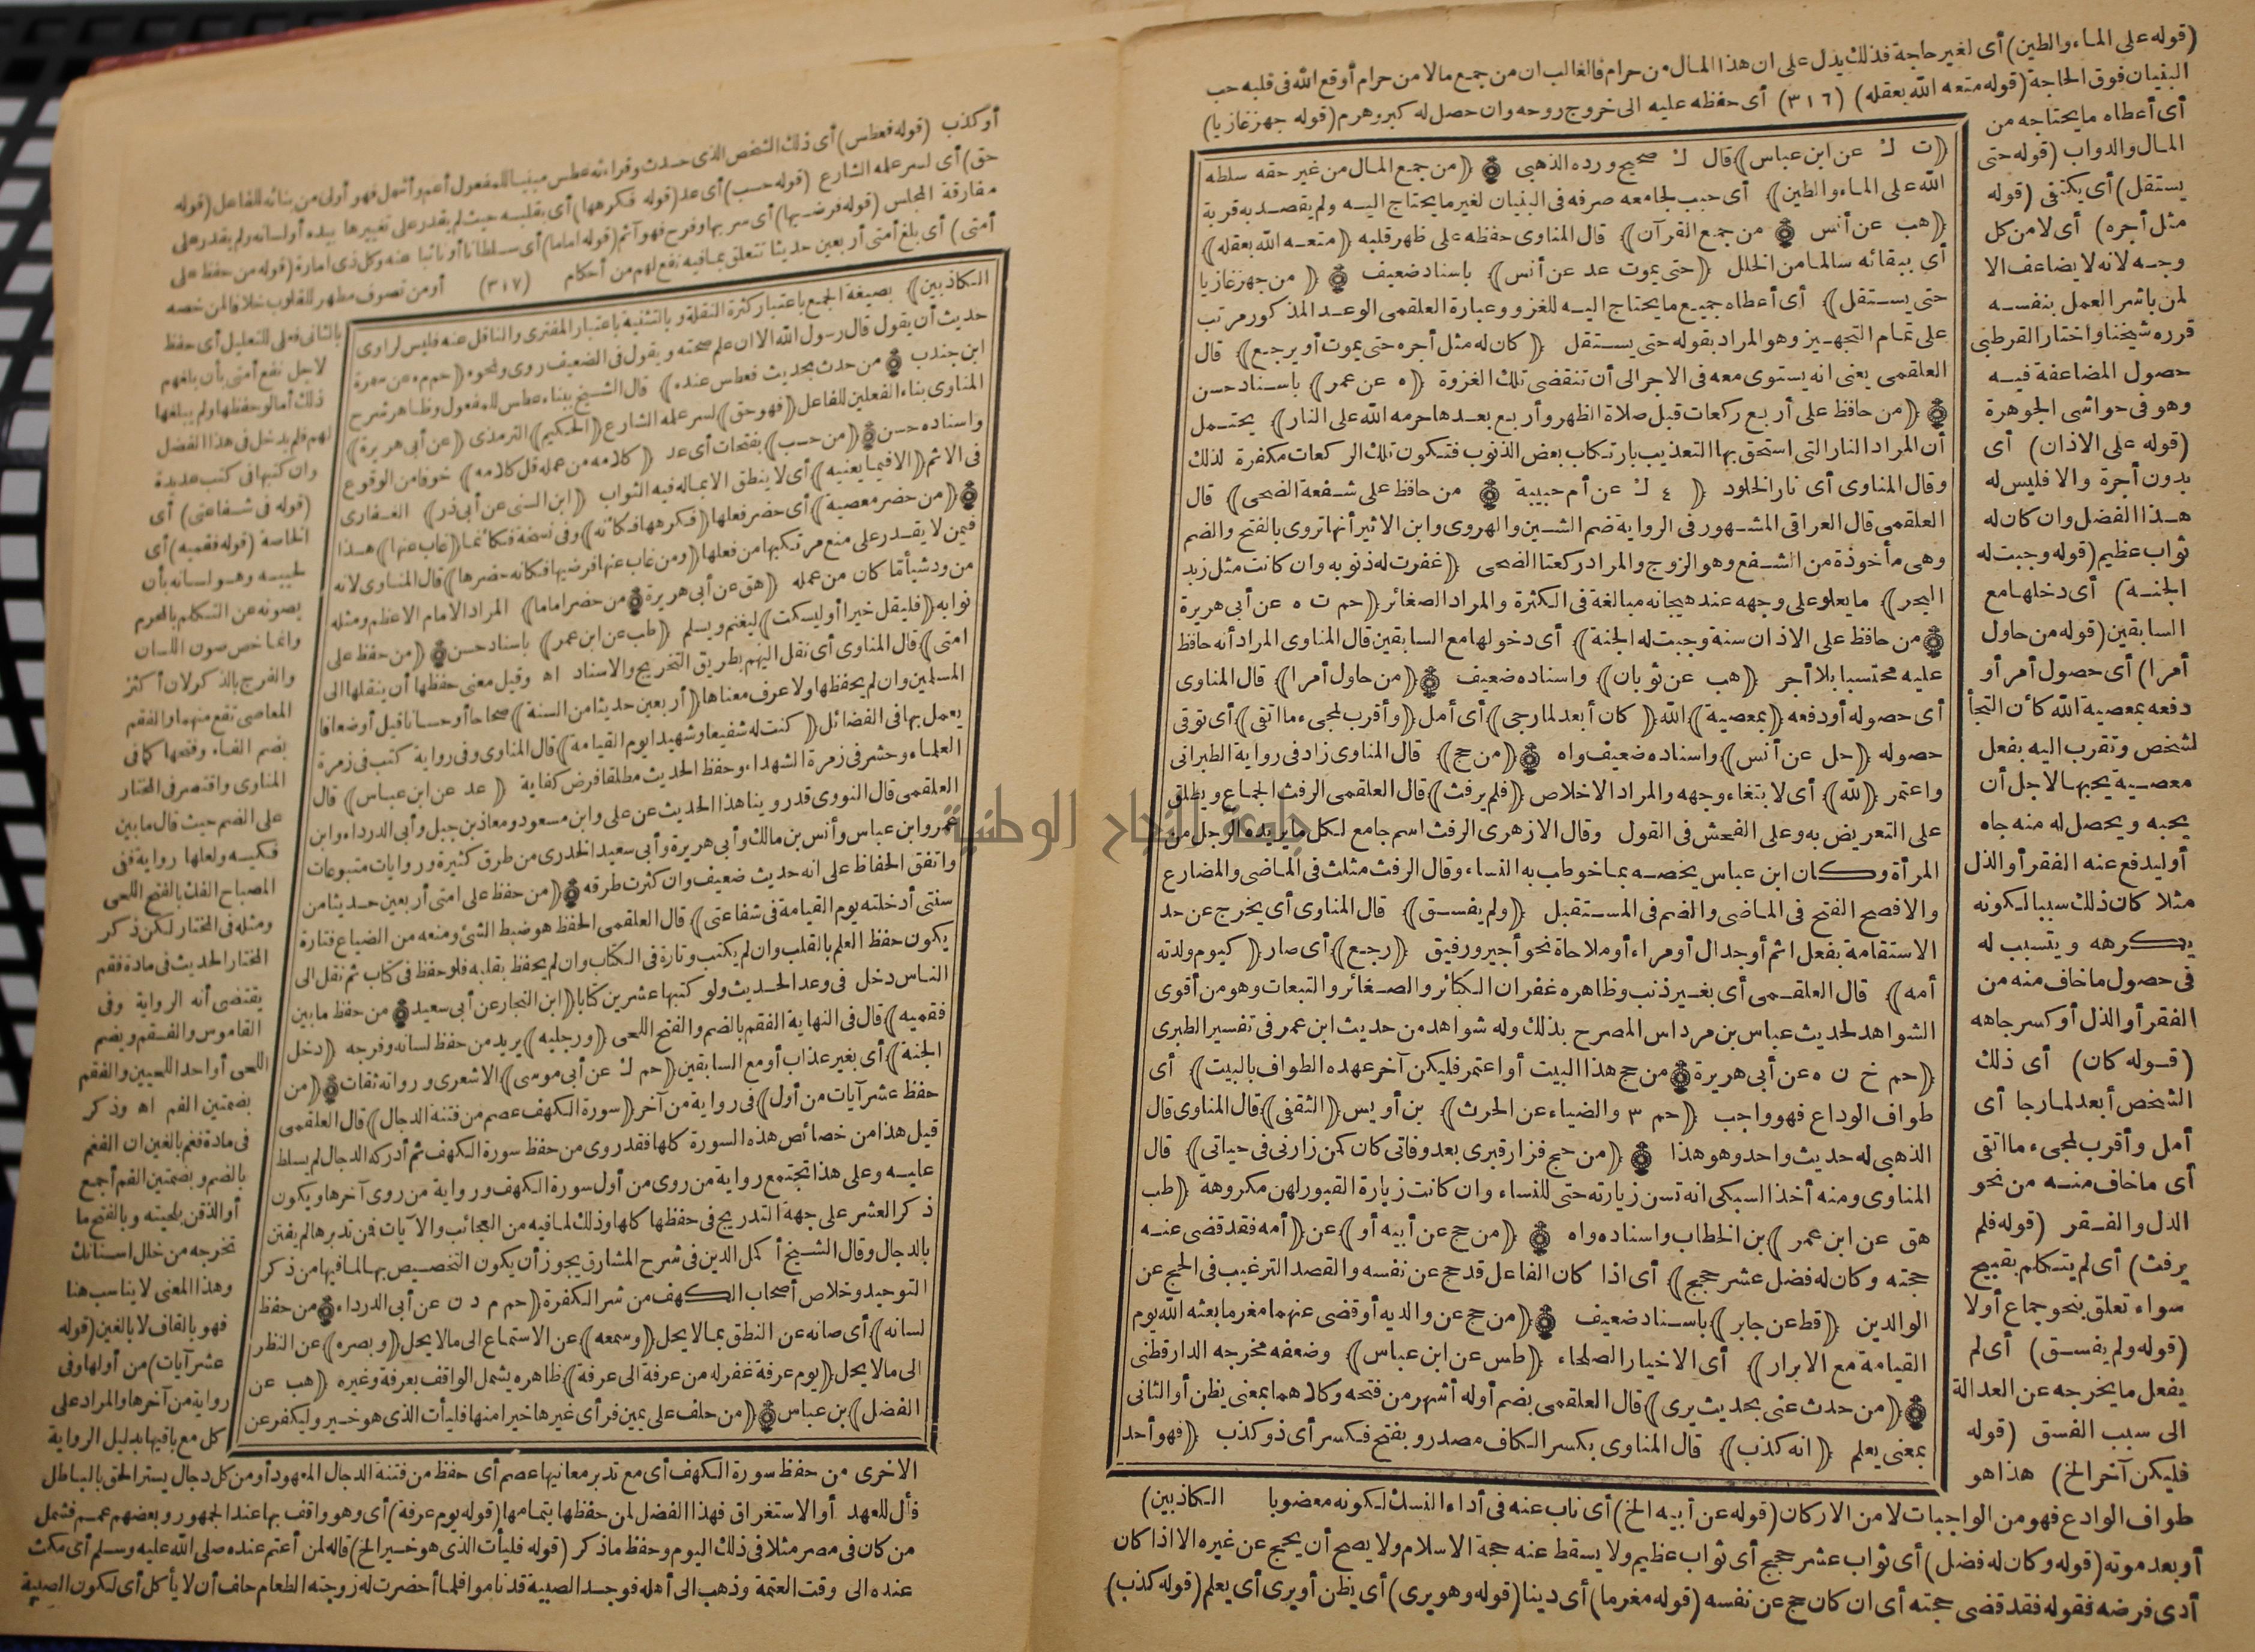 (قوله على الماء والطين) أى لغير حاجة فذلك يدل على ان هذا المال من حرام فالغالب ان من جمع مالا من حرام أوقع الله فى قلبه حب
البنيان فوق الحاجة (قوله متعه الله بعقله) (٣١٦) أى حفظه عليه الى خروج روحه وان حصل له كبر وهرم (قوله جهز غازيا)
أى أعطاه ما يحتاجه من
المال والدواب (قوله حتى
يستقل) أى يكتفى (قوله
مثل أجره) أى لا من كل
وجه لانه لا يضاعف الا
لمن باشر العمل بنفسه
قرره شيخنا واختار القرطبى
حصول المضاعفة فيه
وهو فى حواشى الجوهرة
(قوله على الاذان) أى
بدون أجرة والا فليس له
هذا الفضل وان كان له
ثواب عظيم (قوله وجبت له
الجنة) أى دخلها مع
السابقين (قوله من حاول
أمرا) أى حصول أمر أو
دفعه بمعصية الله كأن التجأ
لشخص وتقرب اليه بفعل
معصية يحبها لاجل أن
يحبه ويحصل له منه جاه
أوليدفع عنه الفقر أو الذل
مثلا كان ذلك سببا لكونه
يكرهه ويتسبب له
فى حصول ما خاف منه من
الفقر أو الذل أو كسر جاهه
(قوله كان) أى ذلك
الشخص أبعد لما رجا أى
أمل وأقرب لمجىء ما اتقى
أى ما خاف منه من نحو
الذل والفقر (قوله فلم
يرفث) أى لم يتكلم بقبيح
سواء تعلق بنحو جماع أولا
(قوله ولم يفسق) أى لم
يفعل ما يخرجه عن العدالة
الى سبب الفسق (قوله
فليكن آخر الخ) هذا هو
(ت ك عن ابن عباس) قال ك صحيح ورده الذهبى (من جمع المال من غير حقه سلطه
الله على الماء والطين) أى حبب لجامعه صرفه فى البنيان لغير ما يحتاج اليه ولم يقصد به قربة
(هب عن أنس من جمع القرآن) قال المناوى حفظه على ظهر قلبه (متعه الله بعقله)
أى ببقائه سالما من الخلل (حتى يموت عد عن أنس) باسناد ضعيف (من جهز غازيا
حتى يستقل) أى أعطاه جميع ما يحتاج اليه للغزو وعبارة العلقمى الوعد المذكور مرتب
على تمام التجهيز وهو المراد بقوله حتى يستقل (كان له مثل أجره حتى يموت أو يرجع) قال
العلقمى يعنى انه يستوى معه فى الاجر الى أن تنقضى تلك الغزوة (ه عن عمر) باسناد حسن
(من حافظ على أربع ركعات قبل صلاة الظهر وأربع بعدها حرمه الله على النار) يحتمل
أن المراد النار التى استحق بها التعذيب بارتكاب بعض الذنوب فتكون تلك الركعات مكفرة لذلك
وقال المناوى أى نار الخلود (٤ ك عن أم حبيبة من حافظ على شفعة الضحى) قال
العلقمى قال العراقى المشهور فى الرواية ضم الشين والهروى وابن الاثير أنها تروى بالفتح والضم
وهى مأخوذة من الشفع وهو الزوج والمراد ركعتا الضحى (غفرت له ذنوبه وان كانت مثل زبد
البحر) ما يعلو على وجهه عند هيجانه مبالغة فى الكثرة والمراد الصغائر (حم ت ه عن أبى هريرة
من حافظ على الاذان سنة وجبت له الجنة) أى دخولها مع السابقين قال المناوى المراد أنه حافظ
عليه محتسبا بلا أجر (هب عن ثوبان) واسناده ضعيف (من حاول أمرا) قال المناوى
أى حصوله أو دفعه (بمعصية) الله (كان أبعد لما رجى) أى أمل (وأقرب لمجىء ما اتقى) أى توقى
حصوله (حل عن أنس) واسناده ضعيف واه (من حج) قال المناوى زاد فى رواية الطبرانى
واعتمر (لله) أى لابتغاء وجهه والمراد الاخلاص (فلم يرفث) قال العلقمى الرفث الجماع ويطلق
على التعريض به وعلى الفحش فى القول وقال الازهرى الرفث اسم جامع لكل ما يريده الرجل من
المرأة وكان ابن عباس يخصه بما خوطب به النساء وقال الرفث مثلث فى الماضى والمضارع
والافصح الفتح فى الماضى والضم فى المستقبل (ولم يفسق) قال المناوى أى يخرج عن حد
الاستقامة بفعل اثم أو جدال أو مراء أو ملاحاة نحو أجير ورفيق (رجع) أى صار (كيوم ولدته
أمه) قال العلقمى أى بغير ذنب وظاهره غفران الكبائر والصغائر والتبعات وهو من أقوى
الشواهد لحديث عباس بن مرداس المصرح بذلك وله شواهد من حديث ابن عمر فى تفسير الطبرى
(حم خ ن ه عن أبى هريرة من حج هذا البيت أو اعتمر فليكن آخر عهده الطواف بالبيت) أى
طواف الوداع فهو واجب (حم ٣ والضياء عن الحرث) بن أويس (الثقفى) قال المناوى قال
الذهبى له حديث واحد وهو هذا (من حج فزار قبرى بعد وفاتى كان كمن زارنى فى حياتى) قال
المناوى ومنه أخذ السبكى انه تسن زيارته حتى للنساء وان كانت زيارة القبور لهن مكروهة (طب
هق عن ابن عمر) بن الخطاب واسناده واه (من حج عن أبيه أو) عن (أمه فقد قضى عنه
حجته وكان له فضل عشر حجج) أى اذا كان الفاعل قد حج عن نفسه والقصد الترغيب فى الحج عن
الوالدين (قط عن جابر) باسناد ضعيف (من حج عن والديه أو قضى عنهما مغرما بعثه الله يوم
القيامة مع الابرار) أى الاخيار الصلحاء (طس عن ابن عباس) وضعفه مخرجه الدارقطنى
(من حدث عنى بحديث يرى) قال العلقمى بضم أوله أشهر من فتحه وكلاهما بمعنى يظن أو الثانى
بمعنى يعلم (انه كذب) قال المناوى بكسر الكاف مصدر وبفتح فكسر أى ذو كذب (فهو أحد
طواف الوادع فهو من الواجبات لا من الاركان (قوله عن أبيه الخ) أى ناب عنه فى أداء النسك لكونه معضوبا الكاذبين)
أو بعد موته (قوله وكان له فضل) أى ثواب عشر حجج أى ثواب عظيم ولا يسقط عنه حجة الاسلام ولا يصح أن يحج عن غيره الا اذا كان
أدى فرضه فقوله فقد قضى حجته أى ان كان حج عن نفسه (قوله مغرما) أى دينا (قوله وهو يرى) أى يظن أو يرى أى يعلم (قوله كذب)
أو كذب (قوله فعطس) أى ذلك الشخص الذى حدث وقراءته عطس مبنيا للمفعول أعم وأشمل فهو أولى من بنائه للفاعل (قوله
حق) أى لسر علمه الشارع (قوله حسب) أى عد (قوله فكرهها) أى بقلبه حيث لم يقدر على تغييرها بيده أو لسانه ولم يقدر على
مفارقة المجلس (قوله فرضيها) أى سر بها وفرح فهو آثم (قوله اماما) أى سلطانا أو نائبا عنه وكل ذى امارة (قوله من حفظ على
أمتى) أى بلغ أمتى أربعين حديثا تتعلق بما فيه نفع لهم من أحكام (٣١٧) أو من تصوف مطهر للقلوب خلافا لمن خصه
الكاذبين) بصيغة الجمع باعتبار كثرة النقلة وبالتثنية باعتبار المفترى والناقل عنه فليس لراوى
حديث أن يقول قال رسول الله الا ان علم صحته ويقول فى الضعيف روى ونحوه (حم م ه عن سمرة
ابن جندب من حدث بحديث فعطس عنده) قال الشيخ ببناء عطس للمفعول وظاهر شرح
المناوى بناء الفعلين للفاعل (فهو حق) لسر علمه الشارع (الحكيم) الترمذى (عن أبى هريرة)
واسناده حسن (من حسب) بفتحات أى عد (كلامه من عمله قل كلامه) خوفا من الوقوع
فى الاثم (الا فيما يعنيه) أى لا ينطق الا بما له فيه الثواب (ابن السنى عن أبى ذر) الغفارى
(من حضر معصية) أى حضر فعلها (فكرهها فكأنه) وفى نسخة فكأنما (غاب عنها) هذا
فيمن لا يقدر على منع مرتكبها من فعلها (ومن غاب عنها فرضيها فكأنه حضرها) قال المناوى لانه
من ود شيأ فكأنما كان من عمله (هق عن أبى هريرة من حضر اماما) المراد الامام الاعظم ومثله
نوابه (فليقل خيرا أو ليسكت) ليغنم ويسلم (طب عن ابن عمر) باسناد حسن (من حفظ على
امتى) قال المناوى أى نقل اليهم بطريق التخريج والاسناد اه وقيل معنى حفظها أن ينقلها الى
المسلمين وان لم يحفظها ولا عرف معناها (أربعين حديثا من السنة) صحاحا أو حسانا قيل أو ضعافا
يعمل بها فى الفضائل (كنت له شفيعا وشهيدا يوم القيامة) قال المناوى وفى رواية كتب فى زمرة
العلماء وحشر فى زمرة الشهداء وحفظ الحديث مطلقا فرض كفاية (عد عن ابن عباس) قال
العلقمى قال النووى قد روينا هذا الحديث عن على وابن مسعود ومعاذ بن جبل وأبى الدرداء وابن
عمر وابن عباس وأنس بن مالك وأبى هريرة وأبى سعيد الخدرى من طرق كثيرة وروايات متنوعات
واتفق الحفاظ على انه حديث ضعيف وان كثرت طرقه (من حفظ على امتى أربعين حديثا من
سنتى أدخلته يوم القيامة فى شفاعتى) قال العلقمى الحفظ هو ضبط الشئ ومنعه من الضياع فتارة
يكون حفظ العلم بالقلب وان لم يكتب وتارة فى الكتاب وان لم يحفظ بقلبه فلو حفظ فى كتاب ثم نقل الى
الناس دخل فى وعد الحديث ولو كتبها عشرين كتابا (ابن النجار عن أبى سعيد من حفظ ما بين
فقميه) قال فى النهاية الفقم بالضم والفتح اللحى (ورجليه) يريد من حفظ لسانه وفرجه (دخل
الجنة) أى بغير عذاب أو مع السابقين (حم ك عن أبى موسى) الاشعرى ورواته ثقات (من
حفظ عشر آيات من أول) فى رواية من آخر (سورة الكهف عصم من فتنة الدجال) قال العلقمى
قيل هذا من خصائص هذه السورة كلها فقد روى من حفظ سورة الكهف ثم أدركه الدجال لم يسلط
عليه وعلى هذا تجتمع رواية من روى من أول سورة الكهف ورواية من روى آخرها ويكون
ذكر العشر على جهة التدريج فى حفظها كلها وذلك لما فيه من العجائب والآيات فمن تدبرها لم يفتتن
بالدجال وقال الشيخ أكمل الدين فى شرح المشارق يجوز أن يكون التخصيص بها لما فيها من ذكر
التوحيد وخلاص أصحاب الكهف من شر الكفرة (حم م د ن عن أبى الدرداء من حفظ
لسانه) أى صانه عن النطق بما لا يحل (وسمعه) عن الاستماع الى ما لا يحل (وبصره) عن النظر
الى ما لا يحل (يوم عرفة غفر له من عرفة الى عرفة) ظاهره يشمل الواقف بعرفة وغيره (هب عن
الفضل) بن عباس (من حلف على يمين فرأى غيرها خيرا منها فليأت الذى هو خير وليكفر عن
بالثانى فعلى للتعليل أى حفظ
لاجل نفع أمتى بأن بلغهم
ذلك أما لو حفظها ولم يبلغها
لهم فلم يدخل فى هذا الفضل
وان كتبها فى كتب عديدة
(قوله فى شفاعتى) أى
الخاصة (قوله فقميه) أى
لحييه وهو لسانه بأن
يصونه عن التكلم بالمحرم
وانما خص صون اللسان
والفرج بالذكر لان أكثر
المعاصى تقع منهما والفقم
بضم الفاء وفتحها كما فى
المناوى واقتصر فى المختار
على الضم حيث قال ما بين
فكيه ولعلها رواية ففى
المصباح الفك بالفتح اللحى
ومثله فى المختار لكن ذكر
المختار الحديث فى مادة فقم
يقتضى أنه الرواية وفى
القاموس والفقم ويضم
اللحى أو احد اللحيين والفقم
بضمتين الفم اه وذكر
فى مادة فغم بالغين ان الفغم
بالضم وبضمتين الفم أجمع
أو الذقن بلحيته وبالفتح ما
تخرجه من خلل اسنانك
وهذا المعنى لا يناسب هنا
فهو بالقاف لا بالغين (قوله
عشر آيات) من أولها وفى
رواية من آخرها والمراد على
كل مع باقيها بدليل الرواية
الاخرى من حفظ سورة الكهف أى مع تدبر معانيها عصم أى حفظ من فتنة الدجال المعهود أو من كل دجال يستر الحق بالباطل
فأل للعهد أو الاستغراق فهذا الفضل لمن حفظها بتمامها (قوله يوم عرفة) أى وهو واقف بها عند الجمهور وبعضهم عمم فشمل
من كان فى مصر مثلا فى ذلك اليوم وحفظ ما ذكر (قوله فليأت الذى هو خير الخ) قاله لمن أعتم عنده صلى الله عليه وسلم أى مكث
عنده الى وقت العتمة وذهب الى أهله فوجد الصبية قد ناموا فلما أحضرت له زوجته الطعام حلف أن لا يأكل أى لكون الصبية
جامعة النجاح الوطنية